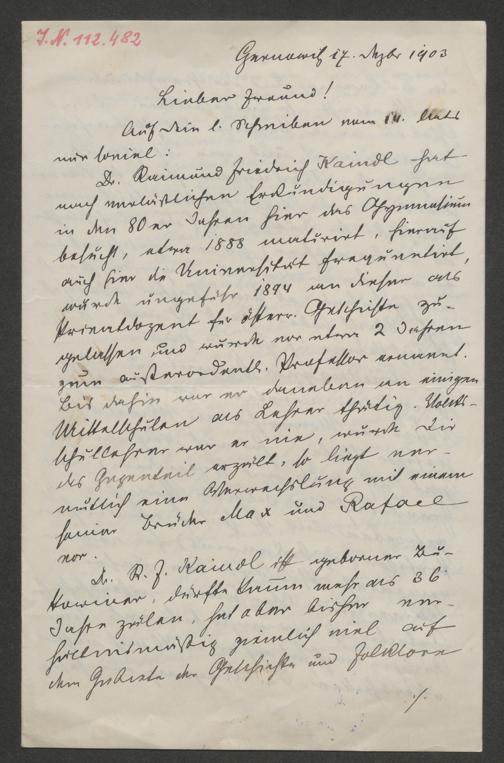 J.N. 112.482
Czernowitz 17. Dezbr 1903
Lieber Freund!
Auf Dein l. Schreiben vom 14. dets
nur soviel:
Dr. Raimund Friedrich Kaindl hat
nach verläßlichen Erkundigungen
in den 80er Jahren hier das Gymnasium
besucht, etwa 1888 maturirt, hierauf
auch hier die Universität frequentirt,
wurde ungefähr 1894 an dieser als
Privatdozent für österr. Geschichte zu-
gelassen und wurde vor etwa 2 Jahren
zum außerordentl. Professor ernannt.
Bis dahin war er daneben an einigen
Mittelschulen als Lehrer thätig. Volks-
schullehrer war er nie, wurde Dir
das Gegenteil erzält, so liegt ver-
mutlich eine Verwechslung mit einem
seiner Brüder Max und Rafael
vor.
Dr. R. F. Kaindl ist geborner Bu-
kowiner, dürfte kaum mehr als 36
Jahre zälen, hat aber bisher ver-
hältnismäßig ziemlich viel auf
dem Gebiete der Geschichte und Folklore
./.